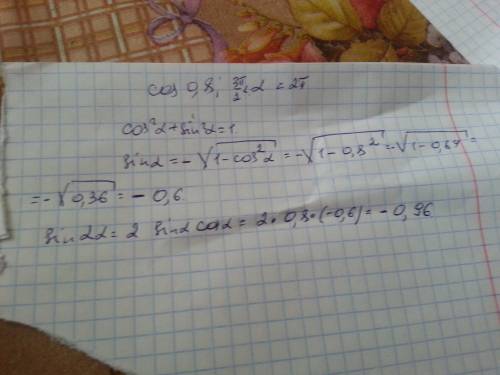 cos 0,8; 3π/2 < α = 2π
cos²α + sin²α = 1
sin α = -√(1-cos²α) = -√(1-0,8²) = -√(1-0,64) =
= -√0,36 = - 0,6
sin 2α = 2 sin α cos α = 2 · 0,8 · (-0,6) = - 0,96